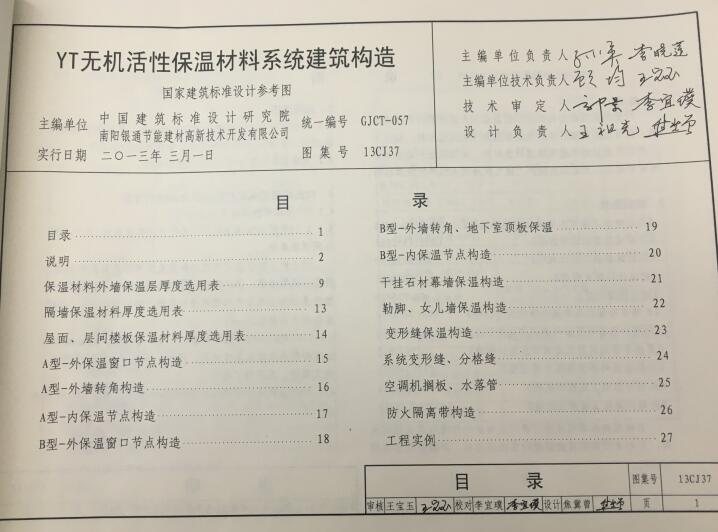 YT无机活性保温材料系统建筑构造
国家建筑标准设计参考图
主编单位 中国建筑标准设计研究院
南阳银通节能建材高新技术开发有限公司
统一编号 GJCT-057
实行日期 二〇一三年三月一日 图集号 13CJ37
主编单位负责人
主编单位技术负责人 顾均
技术审定人 李宜璞
设计负责人 王祖光
目 录
目录 1
说明 2
保温材料外墙保温层厚度选用表 9
隔墙保温材料厚度选用表 13
屋面、层间楼板保温材料厚度选用表 14
A型-外保温窗口节点构造 15
A型-外墙转角构造 16
A型-内保温节点构造 17
B型-外保温窗口节点构造 18
B型-外墙转角、地下室顶板保温 19
B型-内保温节点构造 20
干挂石材幕墙保温构造 21
勒脚、女儿墙保温构造 22
变形缝保温构造 23
系统变形缝、分格缝 24
空调机搁板、水落管 25
防火隔离带构造 26
工程实例 27
目 录 图集号 13CJ37
审核 王宝玉 校对 李宜璞 李宜璞 设计 焦冀曾 页 1